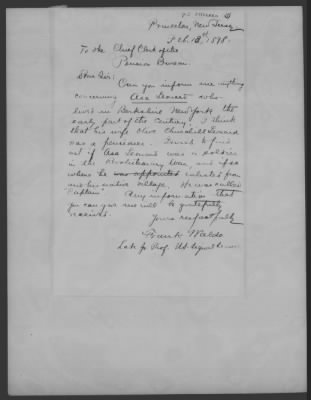 Princeton, New Jersey
Feb. 13th, 1898.
To the Chief Clerk of the
Pension Bureau.
Dear Sir:
Can you inform me anything
concerning Asa Leonard who
lived in Berkshire New York the
early part of the Century. I think
that his wife Olive Churchill Leonard
was a pensioner. I wish to find
out if Asa Leonard was a soldier
in the Revolutionary War, and if so
where he was appointed enlisted from
his native village. He was called
"Captain" Any information that
you can give me will be gratefully
received.
Yours respectfully
Frank Waldo
Late Jr Prof. U.S. Signal